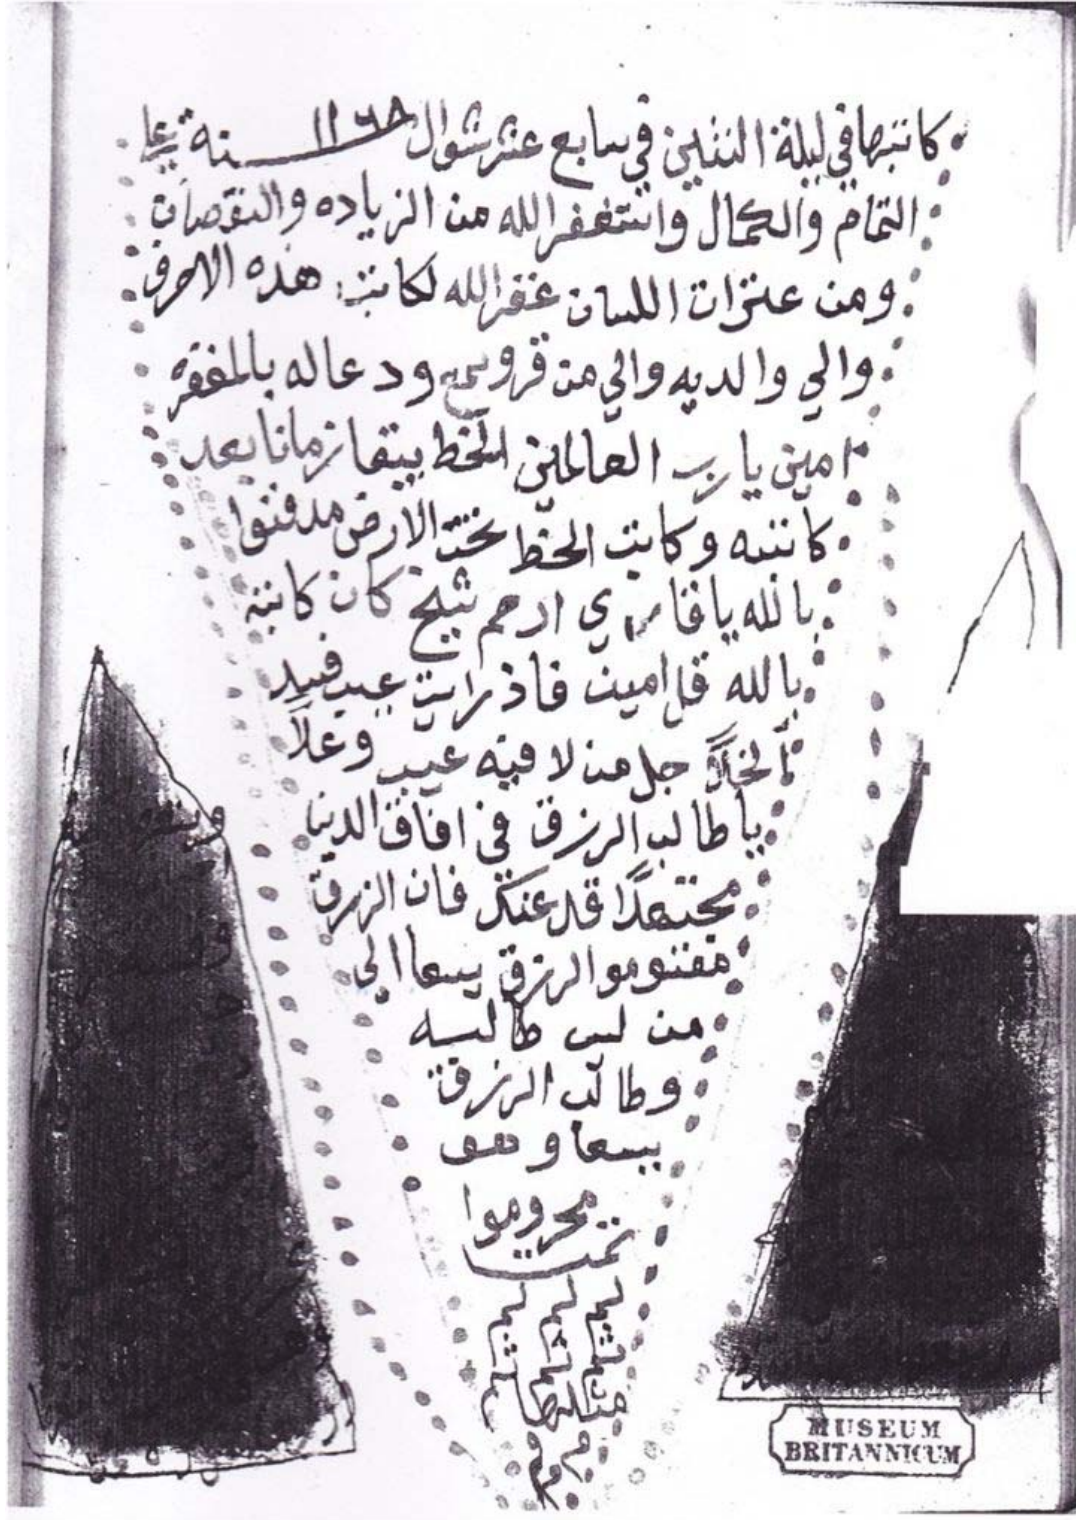 كاتبها في ليلة التنين في سابع عشر شوال سنة ١١٦٨ على
التمام والكمال واستغفر الله من الزياده والنقصان
ومن عثرات اللسان غفر الله لكاتب هذه الاحرف
والي والديه والي من قرو سمع ودعا له بالمغفره
امين يا رب العالمين الخط يبقا زمانا بعد
كاتبه وكاتب الخط تحت الارض مدفنوا
بالله يا قاري ارحم شيخ كان كاتبه
بالله قل امين فاذ رايت عيب فسد
الخلا جل من لا فيه عيب وعلا
يا طالب الرزق في افاق الدنيا
مجتهدا قد عنك فان الرزق
مقسوموا الرزق يسعا الي
من ليس طالبه
وطالب الرزق
يسعا وهو
محروموا
تمت
MUSEUM
BRITANNICUM